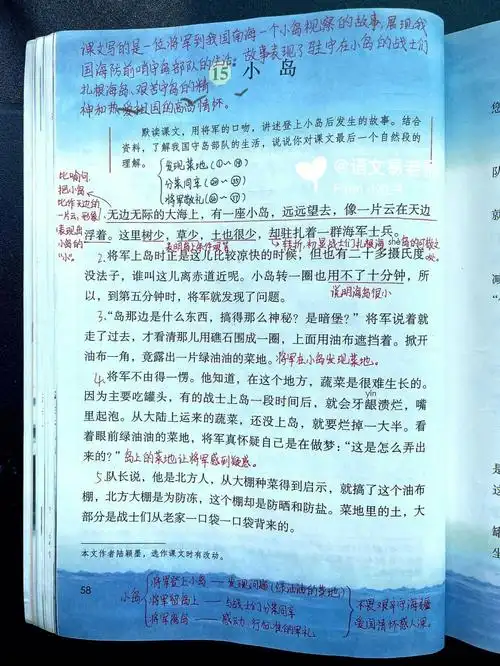 课文写的是一位将军到我国南海一个小岛视察的故事,展现我
国海防前哨守岛部队的生活,故事表现了驻守在小岛的战士们
扎根海岛、艰苦守岛的精
神和热爱祖国的高尚情怀。
15 小岛
默读课文,用将军的口吻,讲述登上小岛后发生的故事。结合
资料,了解我国守岛部队的生活,说说你对课文最后一个自然段的
理解。
发现菜地
分菜同享
将军敬礼
@语文易老师
比喻句,
把小岛
比作天边的
一片云,形象
表现出
小岛的
“小”
无边无际的大海上,有一座小岛,远远望去,像一片云在天边
浮着。这里树少,草少,土也很少,却驻扎着一群海军士兵。
2.将军上岛时正是这儿比较凉快的时候,但也有二十多摄氏度。
没法子,谁叫这儿离赤道近呢。小岛转一圈也用不了十分钟,所
以,到第五分钟时,将军就发现了问题。
说明海岛很小
3.“岛那边是什么东西,搞得那么神秘?是暗堡?”将军说着就
走了过去,才看清那儿用礁石围成一圈,上面用油布遮挡着。掀开
油布一角,竟露出一片绿油油的菜地。将军在小岛发现菜地。
4.将军不由得一愣。他知道,在这个地方,蔬菜是很难生长的。
因为主要吃罐头,有的战士上岛一段时间后,就会牙龈溃烂,嘴
yín
里起泡。从大陆上运来的蔬菜,还没上岛,就要烂掉一大半。看
着眼前绿油油的菜地,将军真怀疑自己是在做梦:“这是怎么弄出
来的?”岛上的菜地让将军感到疑惑。
5.队长说,他是北方人,从大棚种菜得到启示,就搞了这个油布
棚,北方大棚是为防冻,这个棚却是防晒和防盐。菜地里的土,大
部分是战士们从老家一口袋一口袋背来的。
本文作者陆颖墨,选作课文时有改动。
58
小岛
将军登上小岛——发现问题(绿油油的菜地)
将军留岛上——与战士们分菜同享
将军离岛——感动,行标准的军礼
不畏艰辛守海疆
爱国情怀感人深